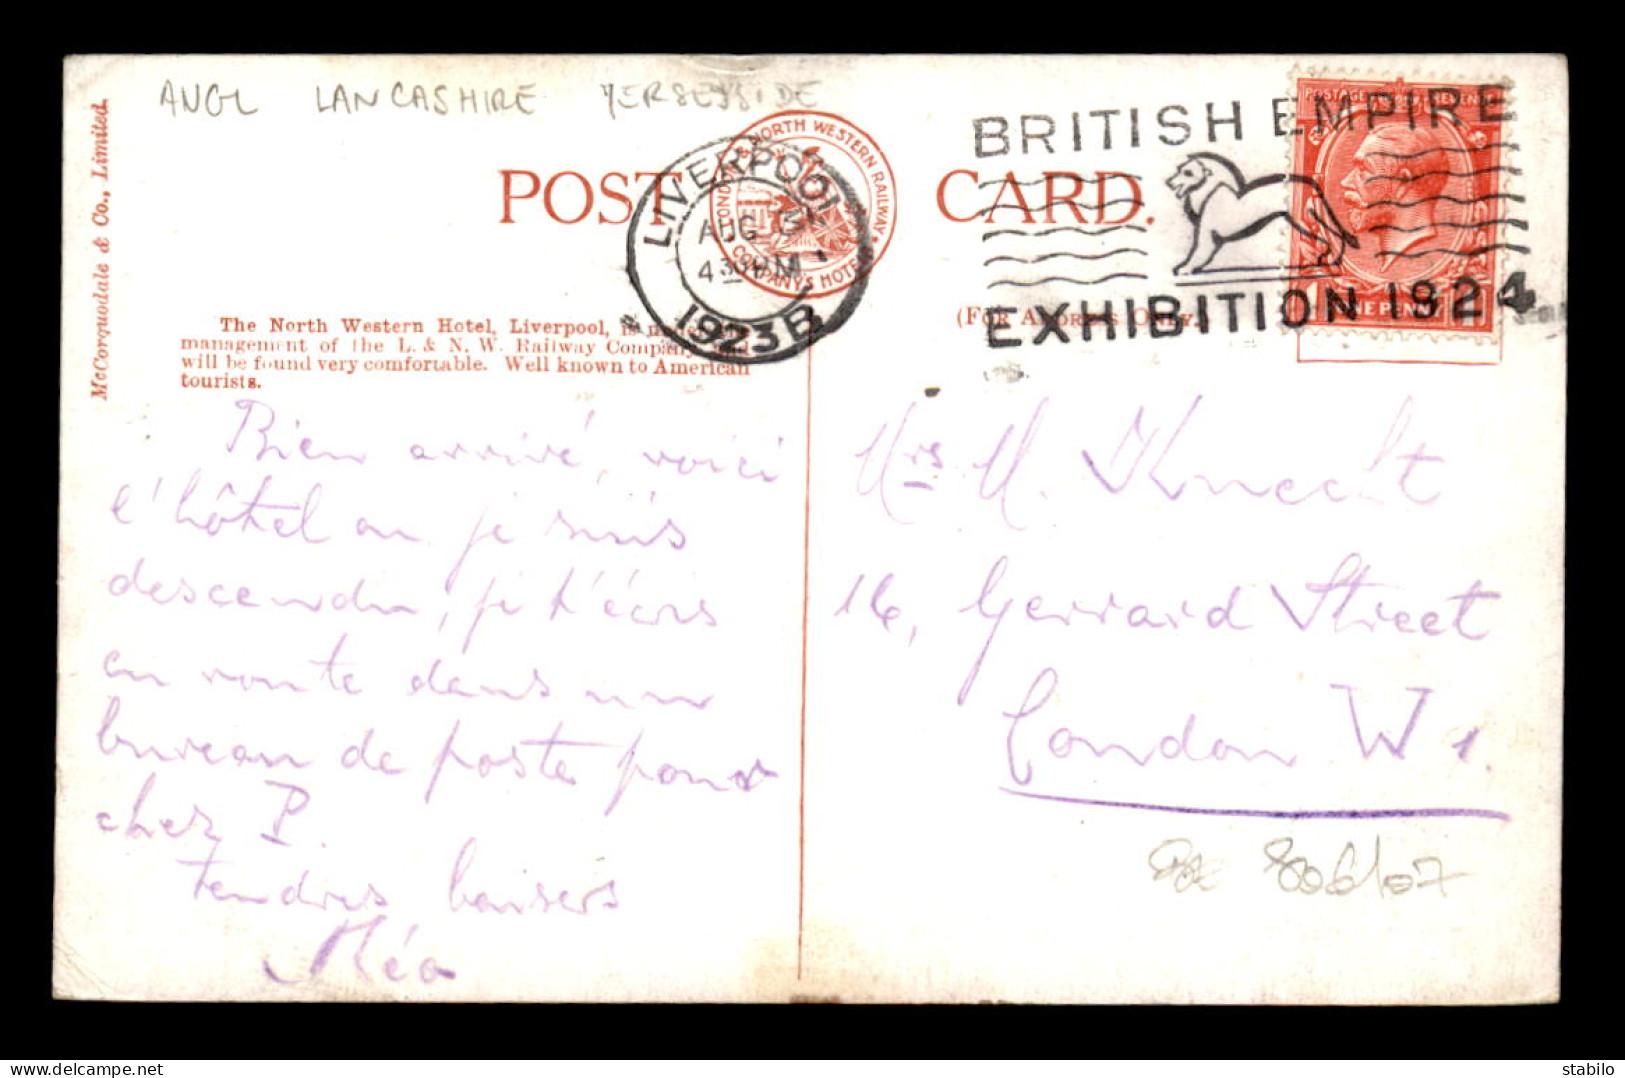 ANGL LANCASHIRE MERSEYSIDE
McCorquodale & Co., Limited.
POST CARD.
LONDON & NORTH WESTERN RAILWAY
COMPANY'S HOTELS
LIVERPOOL
AUG
4 30 PM
1923 B
BRITISH EMPIRE
EXHIBITION 1924
POSTAGE REVENUE
ONE PENNY
(FOR ADDRESS ONLY.)
The North Western Hotel, Liverpool, is under the
management of the L. & N. W. Railway Company, and
will be found very comfortable. Well known to American
tourists.
Bien arrivé, voici
l'hôtel ou je suis
descendu, je t'écris
en route dans un
bureau de poste pour
chez P.
Tendres baisers
Léo
Mrs M. Knecht
16, Gerrard Street
London W 1.
806/07
delcampe.net
bazarlille